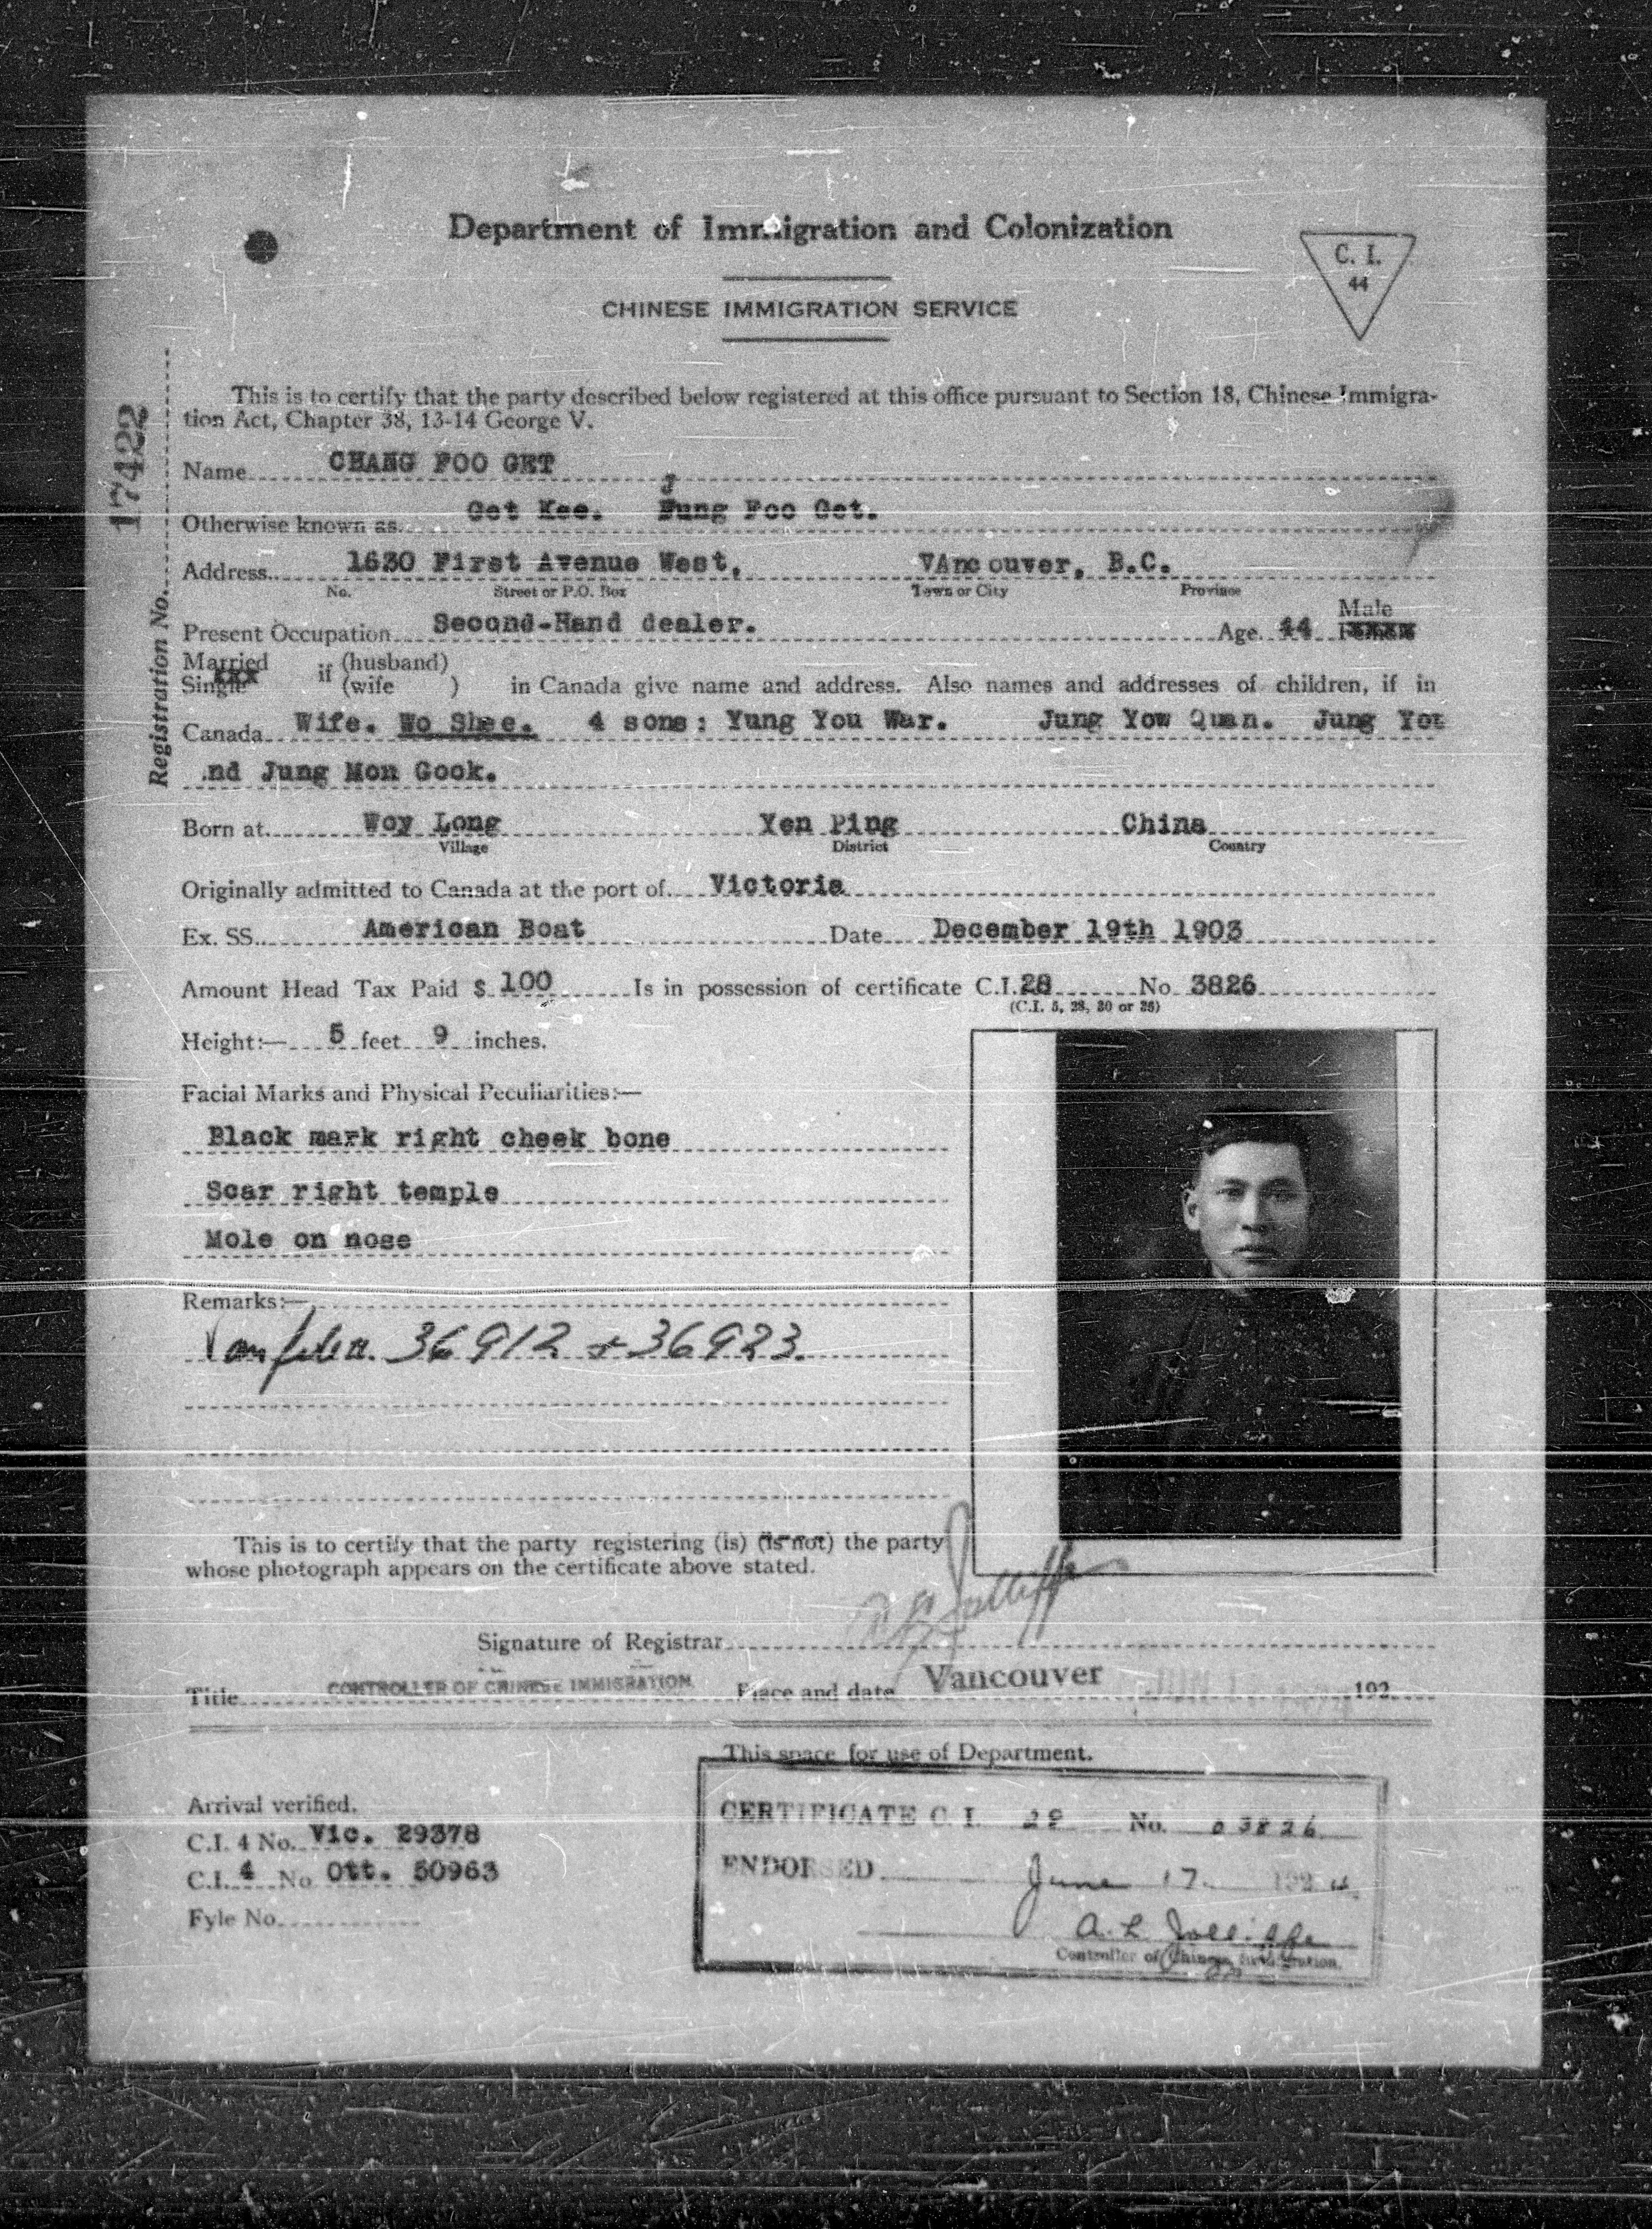 Department of Immigration and Colonization
C. I.
44
CHINESE IMMIGRATION SERVICE
This is to certify that the party described below registered at this office pursuant to Section 18, Chinese Immigra-
tion Act, Chapter 38, 13-14 George V.
Registration No. 17422
Name CHANG FOO GET
J
Otherwise known as. Get Kee. Fung Foo Get.
Address 1630 First Avenue West, VAncouver, B.C.
No. Street or P.O. Box Town or City Province
Male
Present Occupation Second-Hand dealer. Age 44
Married if (husband)
Single (wife ) in Canada give name and address. Also names and addresses of children, if in
Canada Wife. Wo Shee. 4 sons: Yung You War. Jung Yow Quan. Jung You
nd Jung Mon Gook.
Born at Woy Long Yen Ping China
Village District Country
Originally admitted to Canada at the port of Victoria
Ex. SS. American Boat Date December 19th 1903
Amount Head Tax Paid $ 100 Is in possession of certificate C.I. 28 No 3826
(C.I. 5, 28, 30 or 36)
Height:— 5 feet 9 inches.
Facial Marks and Physical Peculiarities:—
Black mark right cheek bone
Scar right temple
Mole on nose
Remarks:—
36912 + 36923.
This is to certify that the party registering (is) (is not) the party
whose photograph appears on the certificate above stated.
Signature of Registrar A L Jolliffe
Title CONTROLLER OF CHINESE IMMIGRATION Place and date Vancouver JUN 192
This space for use of Department.
Arrival verified.
C.I. 4 No. Vic. 29378
C.I. 4 No Ott. 50963
Fyle No.
CERTIFICATE C. I. 28 No. 03826
ENDORSED June 17. 1924
A. L. Jolliffe
Controller of Chinese Immigration.